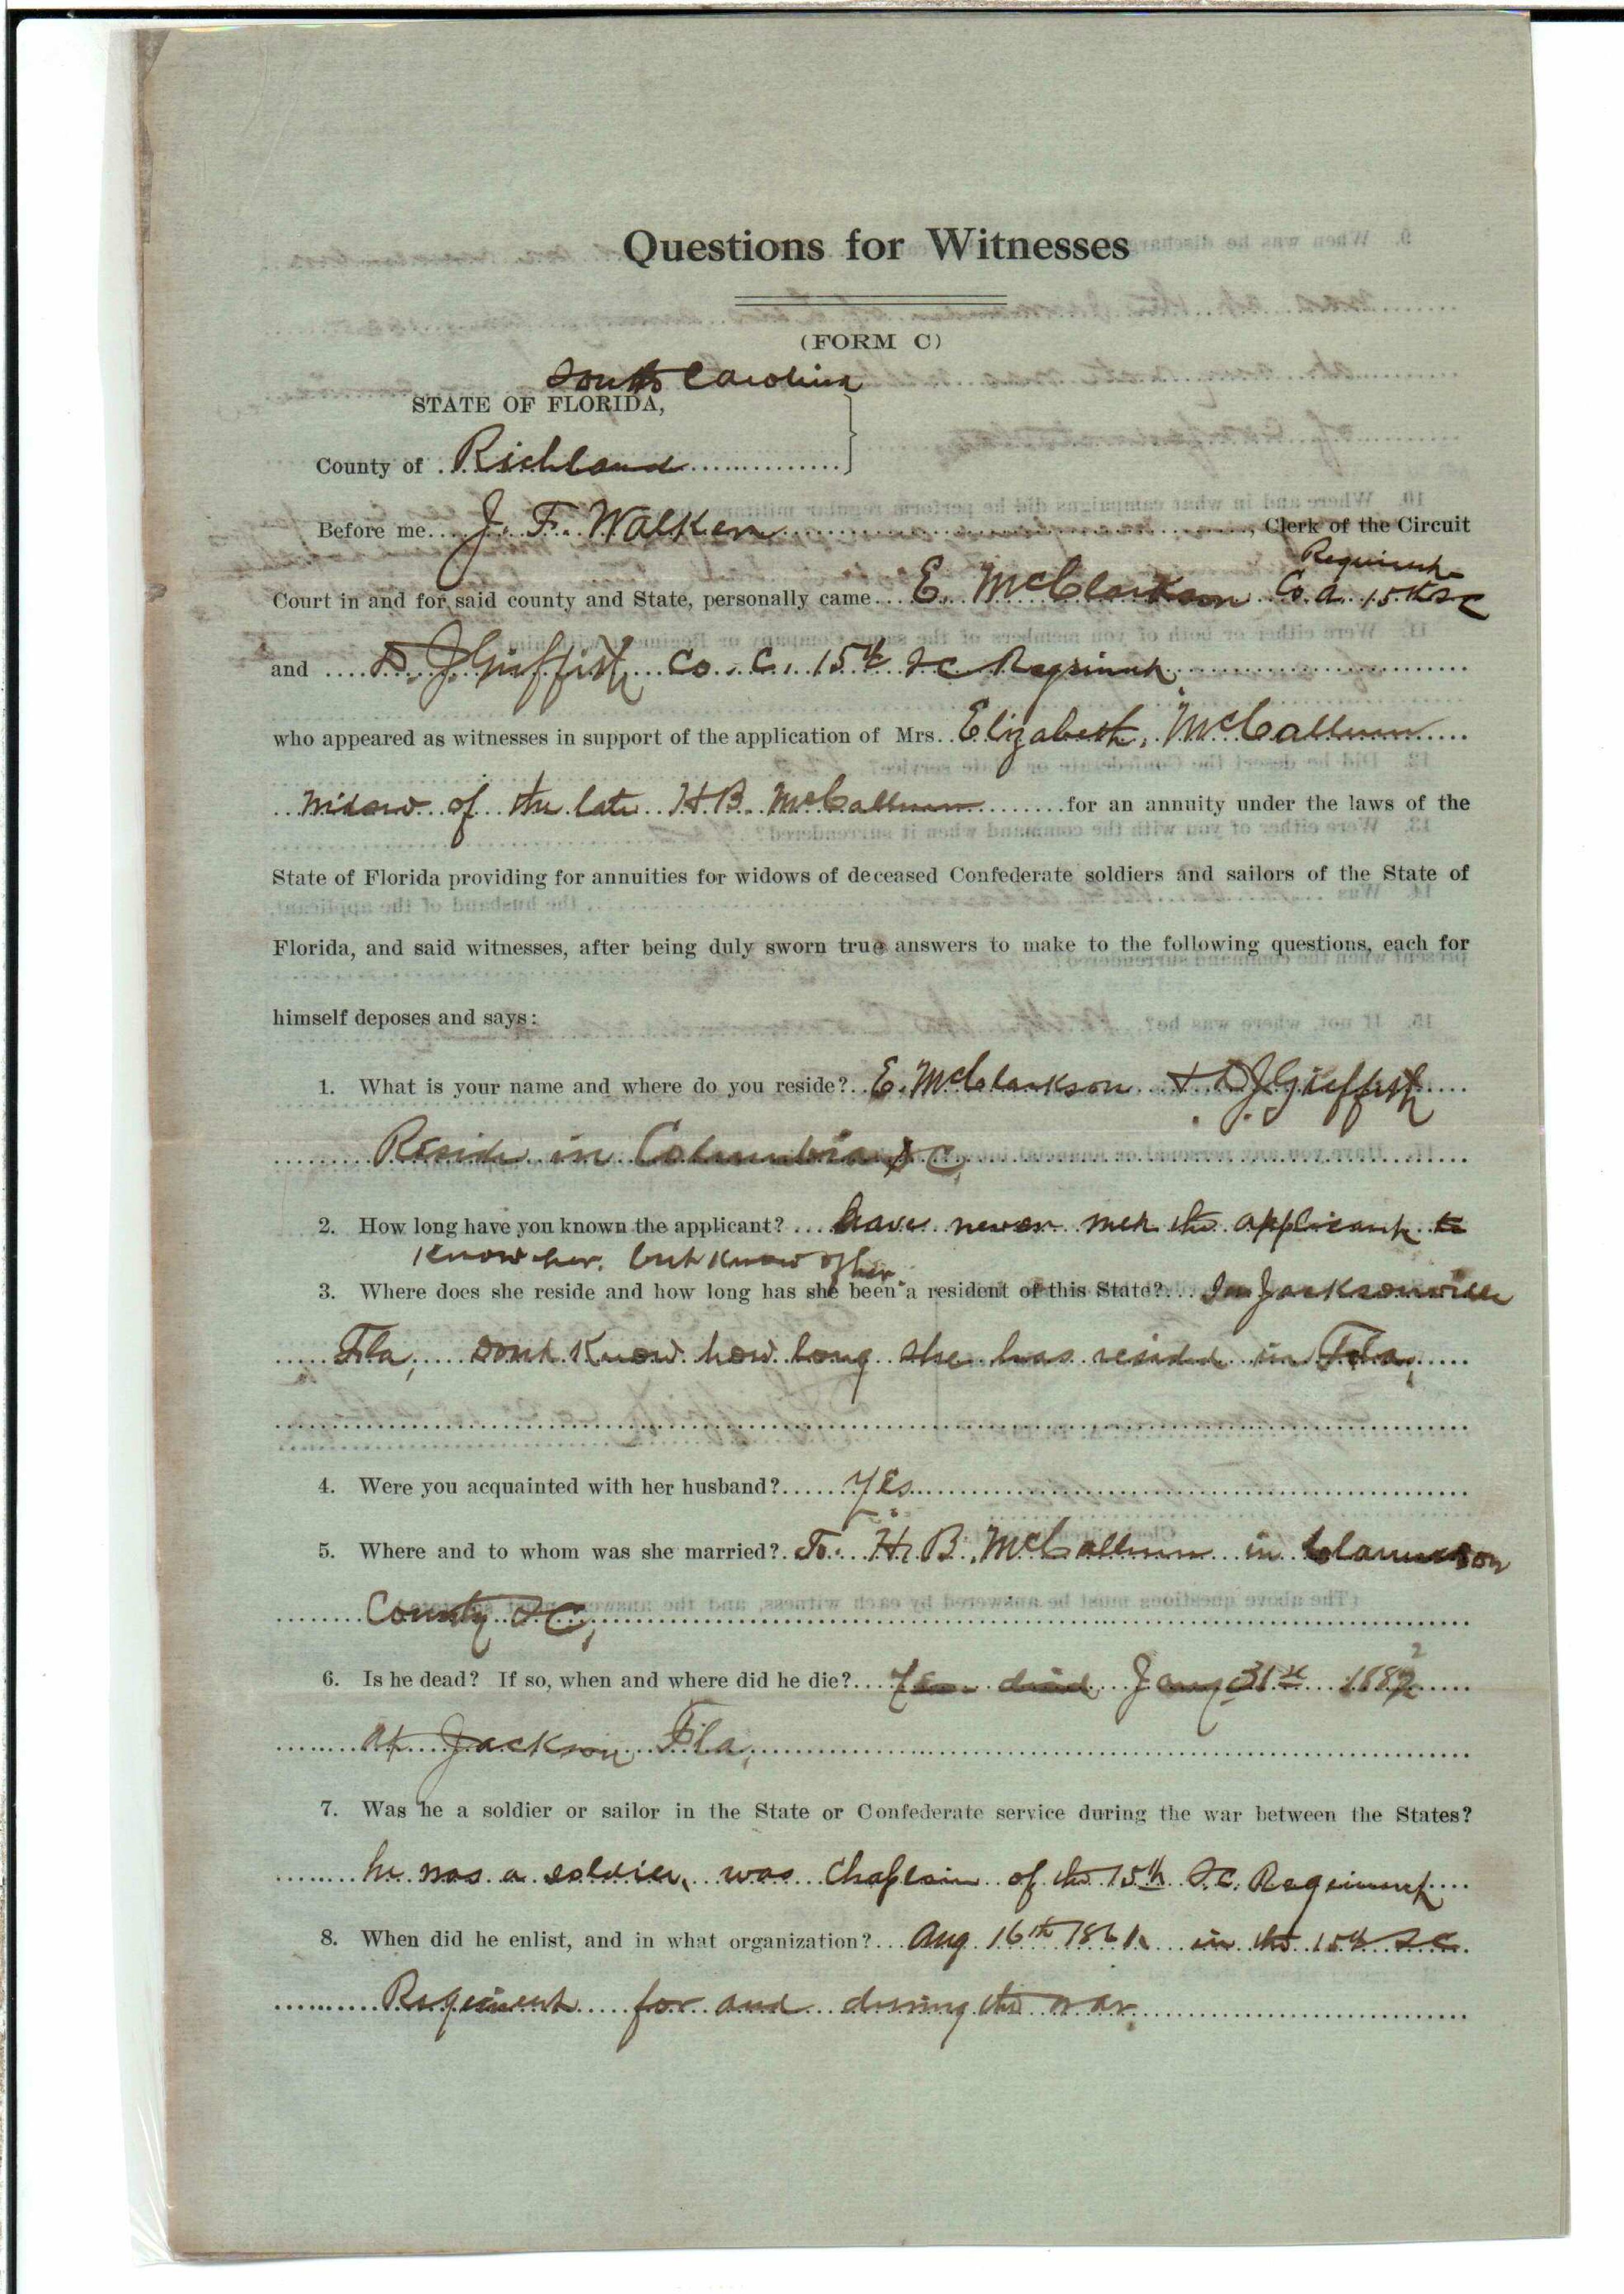 Questions for Witnesses
(FORM C)
South Carolina
STATE OF FLORIDA,
County of Richland
Before me J. F. Walker, Clerk of the Circuit
Regiment
Court in and for said county and State, personally came E. McClarkson Co. A. 15th SC
and D. J. Griffith Co. C. 15th SC Regiment
who appeared as witnesses in support of the application of Mrs. Elizabeth McCallum
widow of the late H B McCallum for an annuity under the laws of the
State of Florida providing for annuities for widows of deceased Confederate soldiers and sailors of the State of
Florida, and said witnesses, after being duly sworn true answers to make to the following questions, each for
himself deposes and says:
1. What is your name and where do you reside? E. McClarkson + D J Griffith
Reside in Columbia S C.
2. How long have you known the applicant? have never met the applicant to
know her. but know of her.
3. Where does she reside and how long has she been a resident of this State? In Jacksonville
Fla, dont Know how long she has resided in Fla,
4. Were you acquainted with her husband? Yes
5. Where and to whom was she married? To H. B. McCallum in
County SC,
6. Is he dead? If so, when and where did he die? Yes died Jany 31st 1882
at Jackson Fla,
7. Was he a soldier or sailor in the State or Confederate service during the war between the States?
he was a soldier, was Chaplain of the 15th S.C. Regiment
8. When did he enlist, and in what organization? Aug 16th 1861. in the 15th SC
Regiment for and during the war.